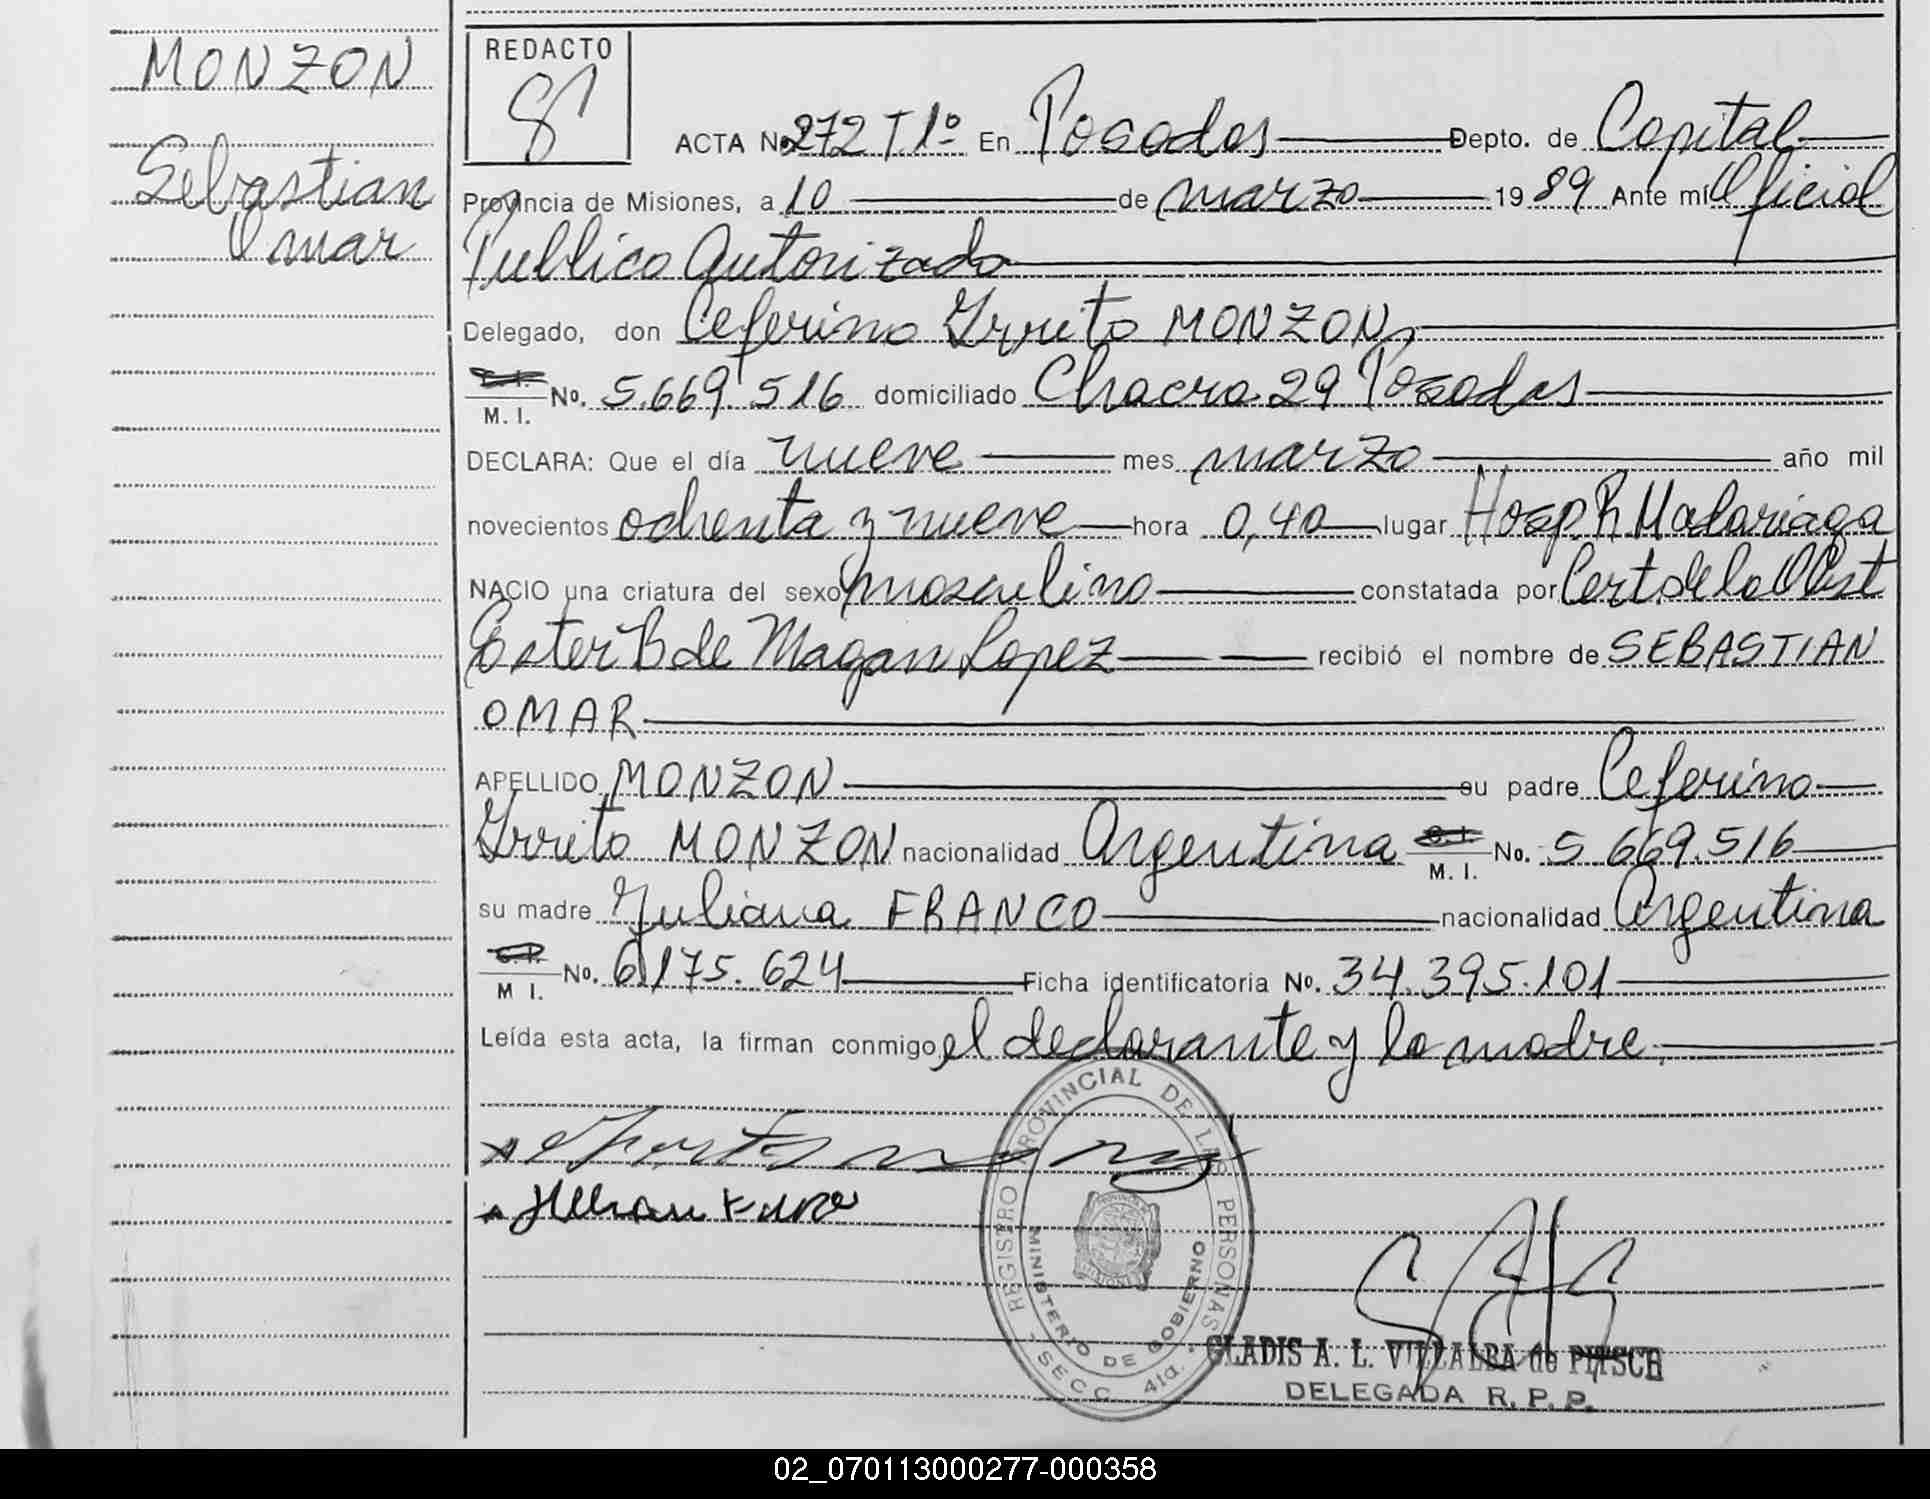 MONZON
Sebastian
Omar
REDACTO
ACTA No. 272 T 1º En Posadas Depto. de Capital
Provincia de Misiones, a 10 de marzo 1989 Ante mí Oficial
Publico Autorizado
Delegado, don Ceferino Yrrito MONZON,
M. I. No. 5.669.516 domiciliado Chacra 29 Posadas
DECLARA: Que el día nueve mes marzo año mil
novecientos ochenta y nueve hora 0,40 lugar Hosp. R Madariaga
NACIO una criatura del sexo masculino constatada por Cert. de la Obst
Ester B de Magan Lopez recibió el nombre de SEBASTIAN
OMAR
APELLIDO MONZON su padre Ceferino
Yrrito MONZON nacionalidad Argentina M. I. No. 5.669.516
su madre Juliana FRANCO nacionalidad Argentina
M I. No. 6.175.624 Ficha identificatoria No. 34.395.101
Leída esta acta, la firman conmigo, el declarante y la madre.
REGISTRO PROVINCIAL DE LAS PERSONAS
MINISTERIO DE GOBIERNO
SECC. 41a.
GLADIS A. L. VILLALBA de PITSCH
DELEGADA R. P. P.
02_070113000277-000358